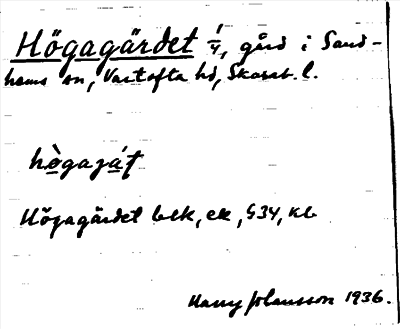 Högagärdet 1/4, gård i Sand-
hems sn, Vartofta hd, Skarab. l.
hògagá̱t
Högagärdet bek, ek, §34, Kb
Harry Johansson 1936.